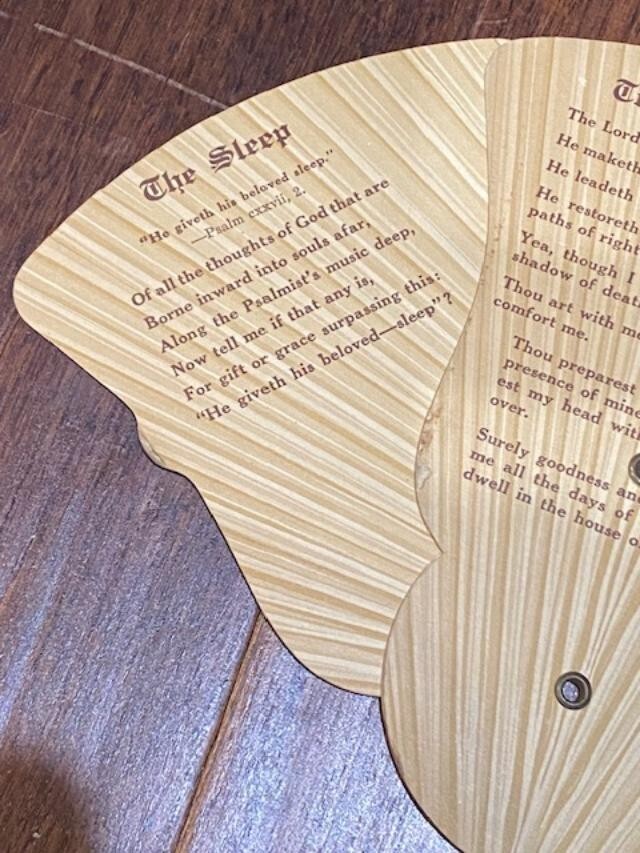 The Sleep
"He giveth his beloved sleep."
—Psalm cxxvii, 2.
Of all the thoughts of God that are
Borne inward into souls afar,
Along the Psalmist's music deep,
Now tell me if that any is,
For gift or grace surpassing this:
"He giveth his beloved—sleep"?
The Lord
He maketh
He leadeth
He restoreth
paths of right
Yea, though I
shadow of deat
Thou art with me
comfort me.
Thou preparest
presence of mine
est my head with
over.
Surely goodness and
me all the days of
dwell in the house o